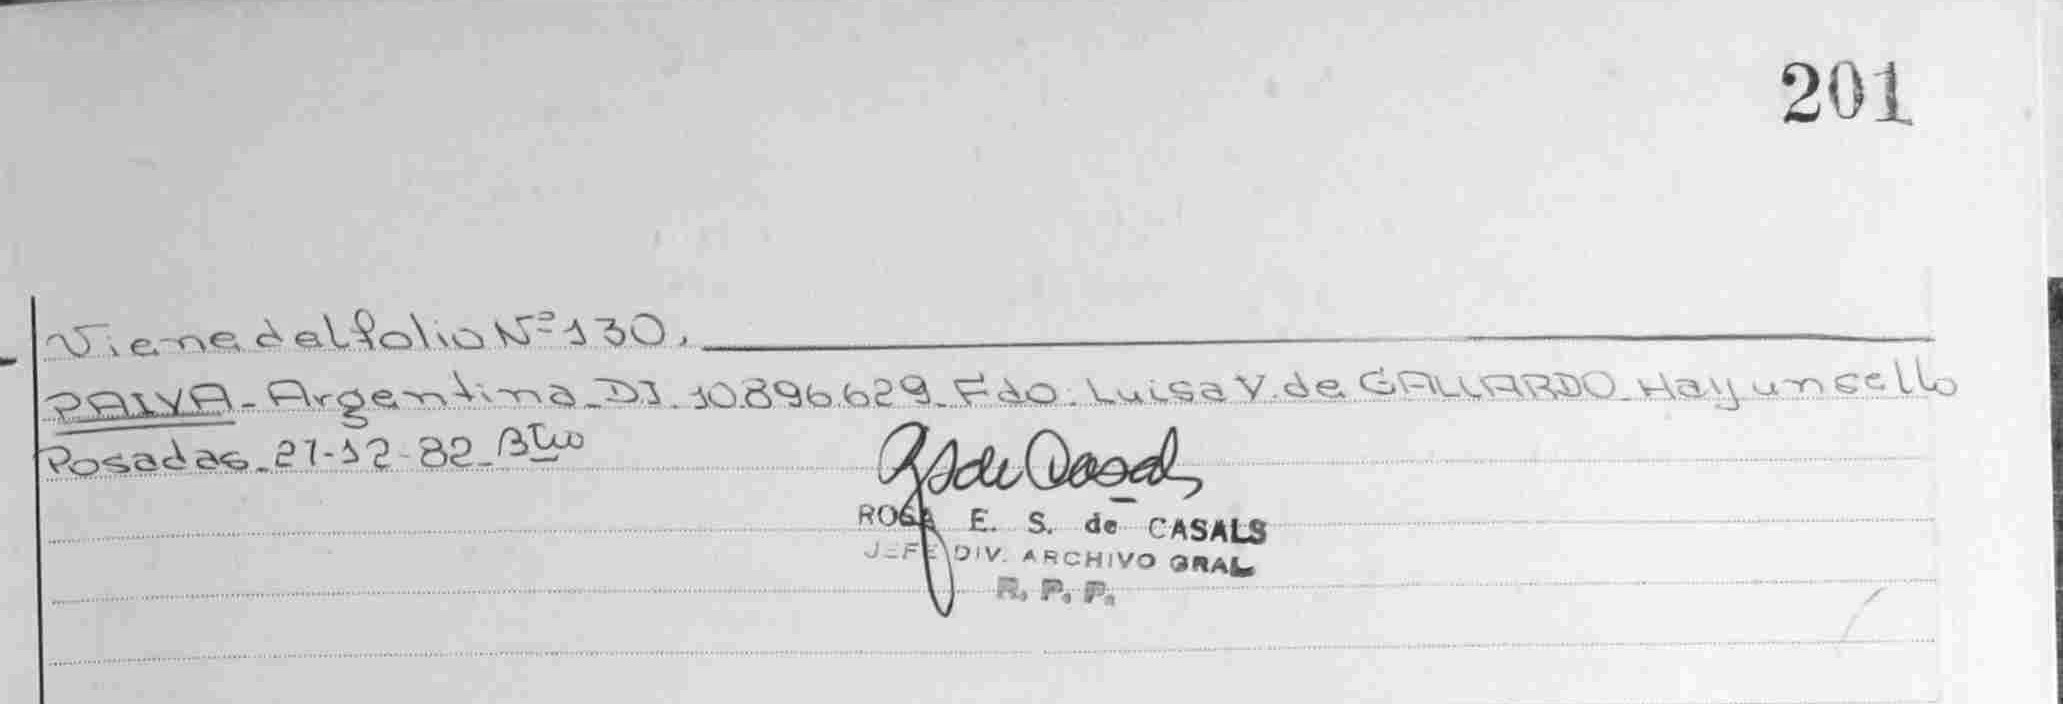 201
Viene del folio Nº 130.
PAIVA - Argentina - DI. 10.896.629 - Fdo: Luisa V. de GALLARDO - Hay un sello
Posadas - 27-12-82 -
ROSA E. S. de CASALS
JEFE DIV. ARCHIVO GRAL
R. P. P.